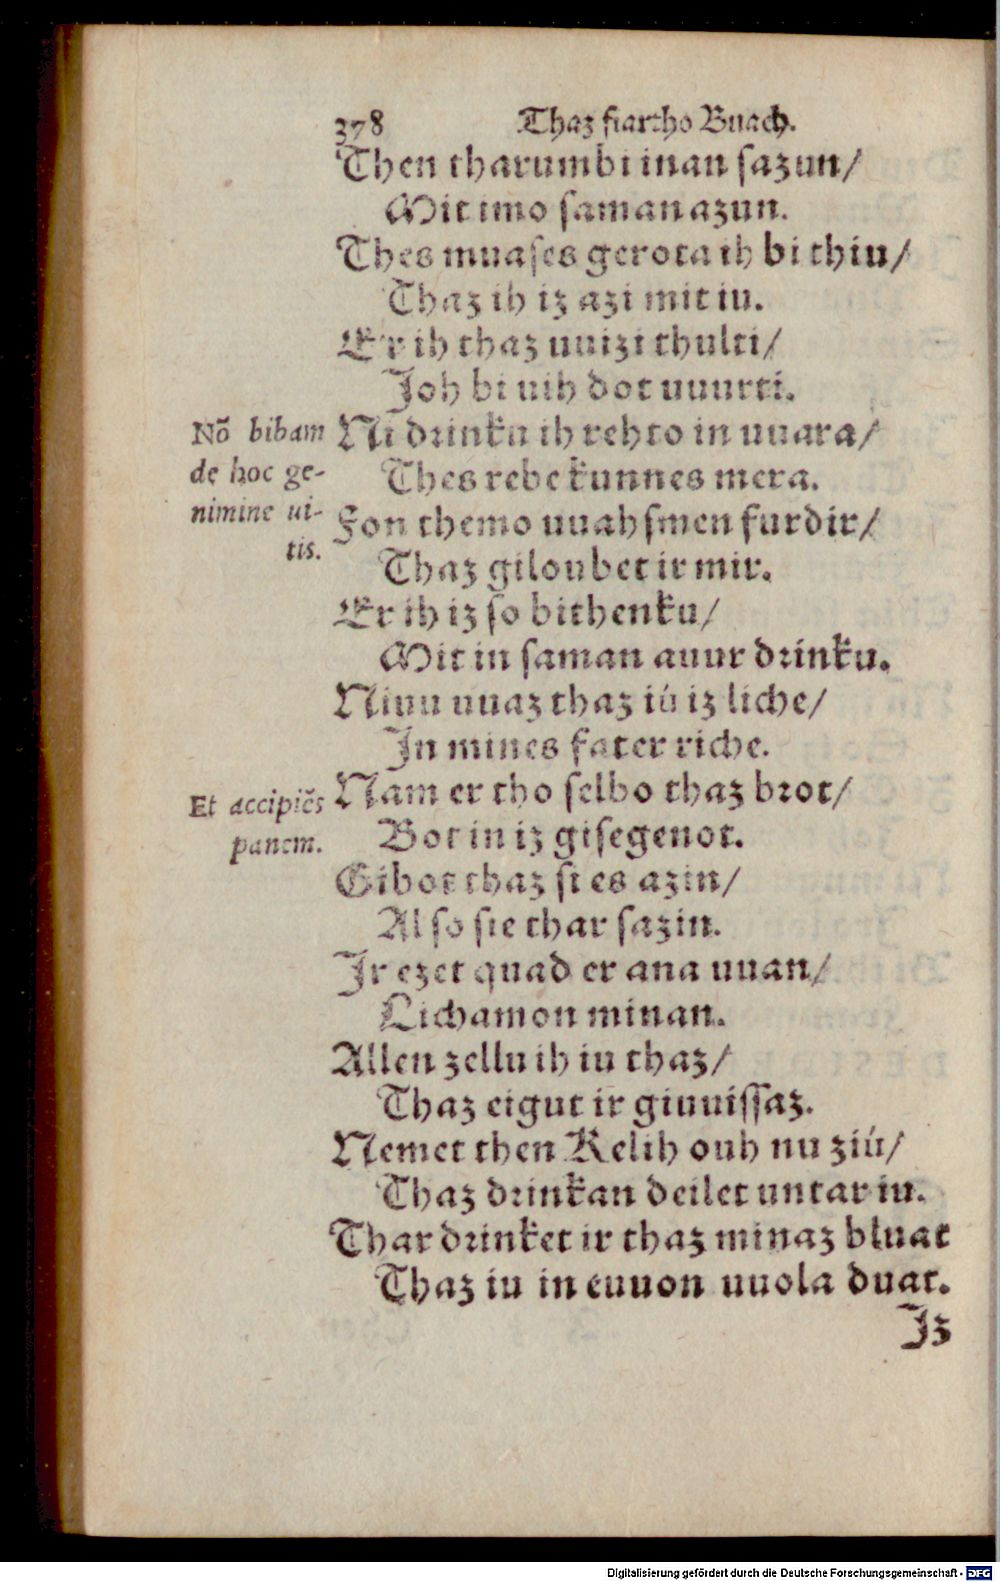 378 Thaz fiartho Buach.
Then tharumbi inan sazun/
Mit imo saman azun.
Thes muases gerota ih bi thiu/
Thaz ih iz azi mit iu.
Er ih thaz uuizi thulti/
Joh bi uih dot uuurti.
Nō bibam
de hoc ge-
nimine ui-
tis.
Ni drinku ih rehto in uuara/
Thes rebekunnes mera.
Fon themo uuahsmen furdir/
Thaz giloubet ir mir.
Er ih iz so bithenku/
Mit in saman auur drinku.
Niuu uuaz thaz iú iz liche/
In mines fater riche.
Et accipiēs
panem.
Nam er tho selbo thaz brot/
Bot in iz gisegenot.
Gibot thaz si es azin/
Al so sie thar sazin.
Ir ezet quad er ana uuan/
Lichamon minan.
Allen zellu ih iu thaz/
Thaz eigut ir giuuissaz.
Nemet then Kelih ouh nu ziú/
Thaz drinkan deilet untar iu.
Thar drinket ir thaz minaz bluat
Thaz iu in euuon uuola duat.
Iz
Digitalisierung gefördert durch die Deutsche Forschungsgemeinschaft - DFG